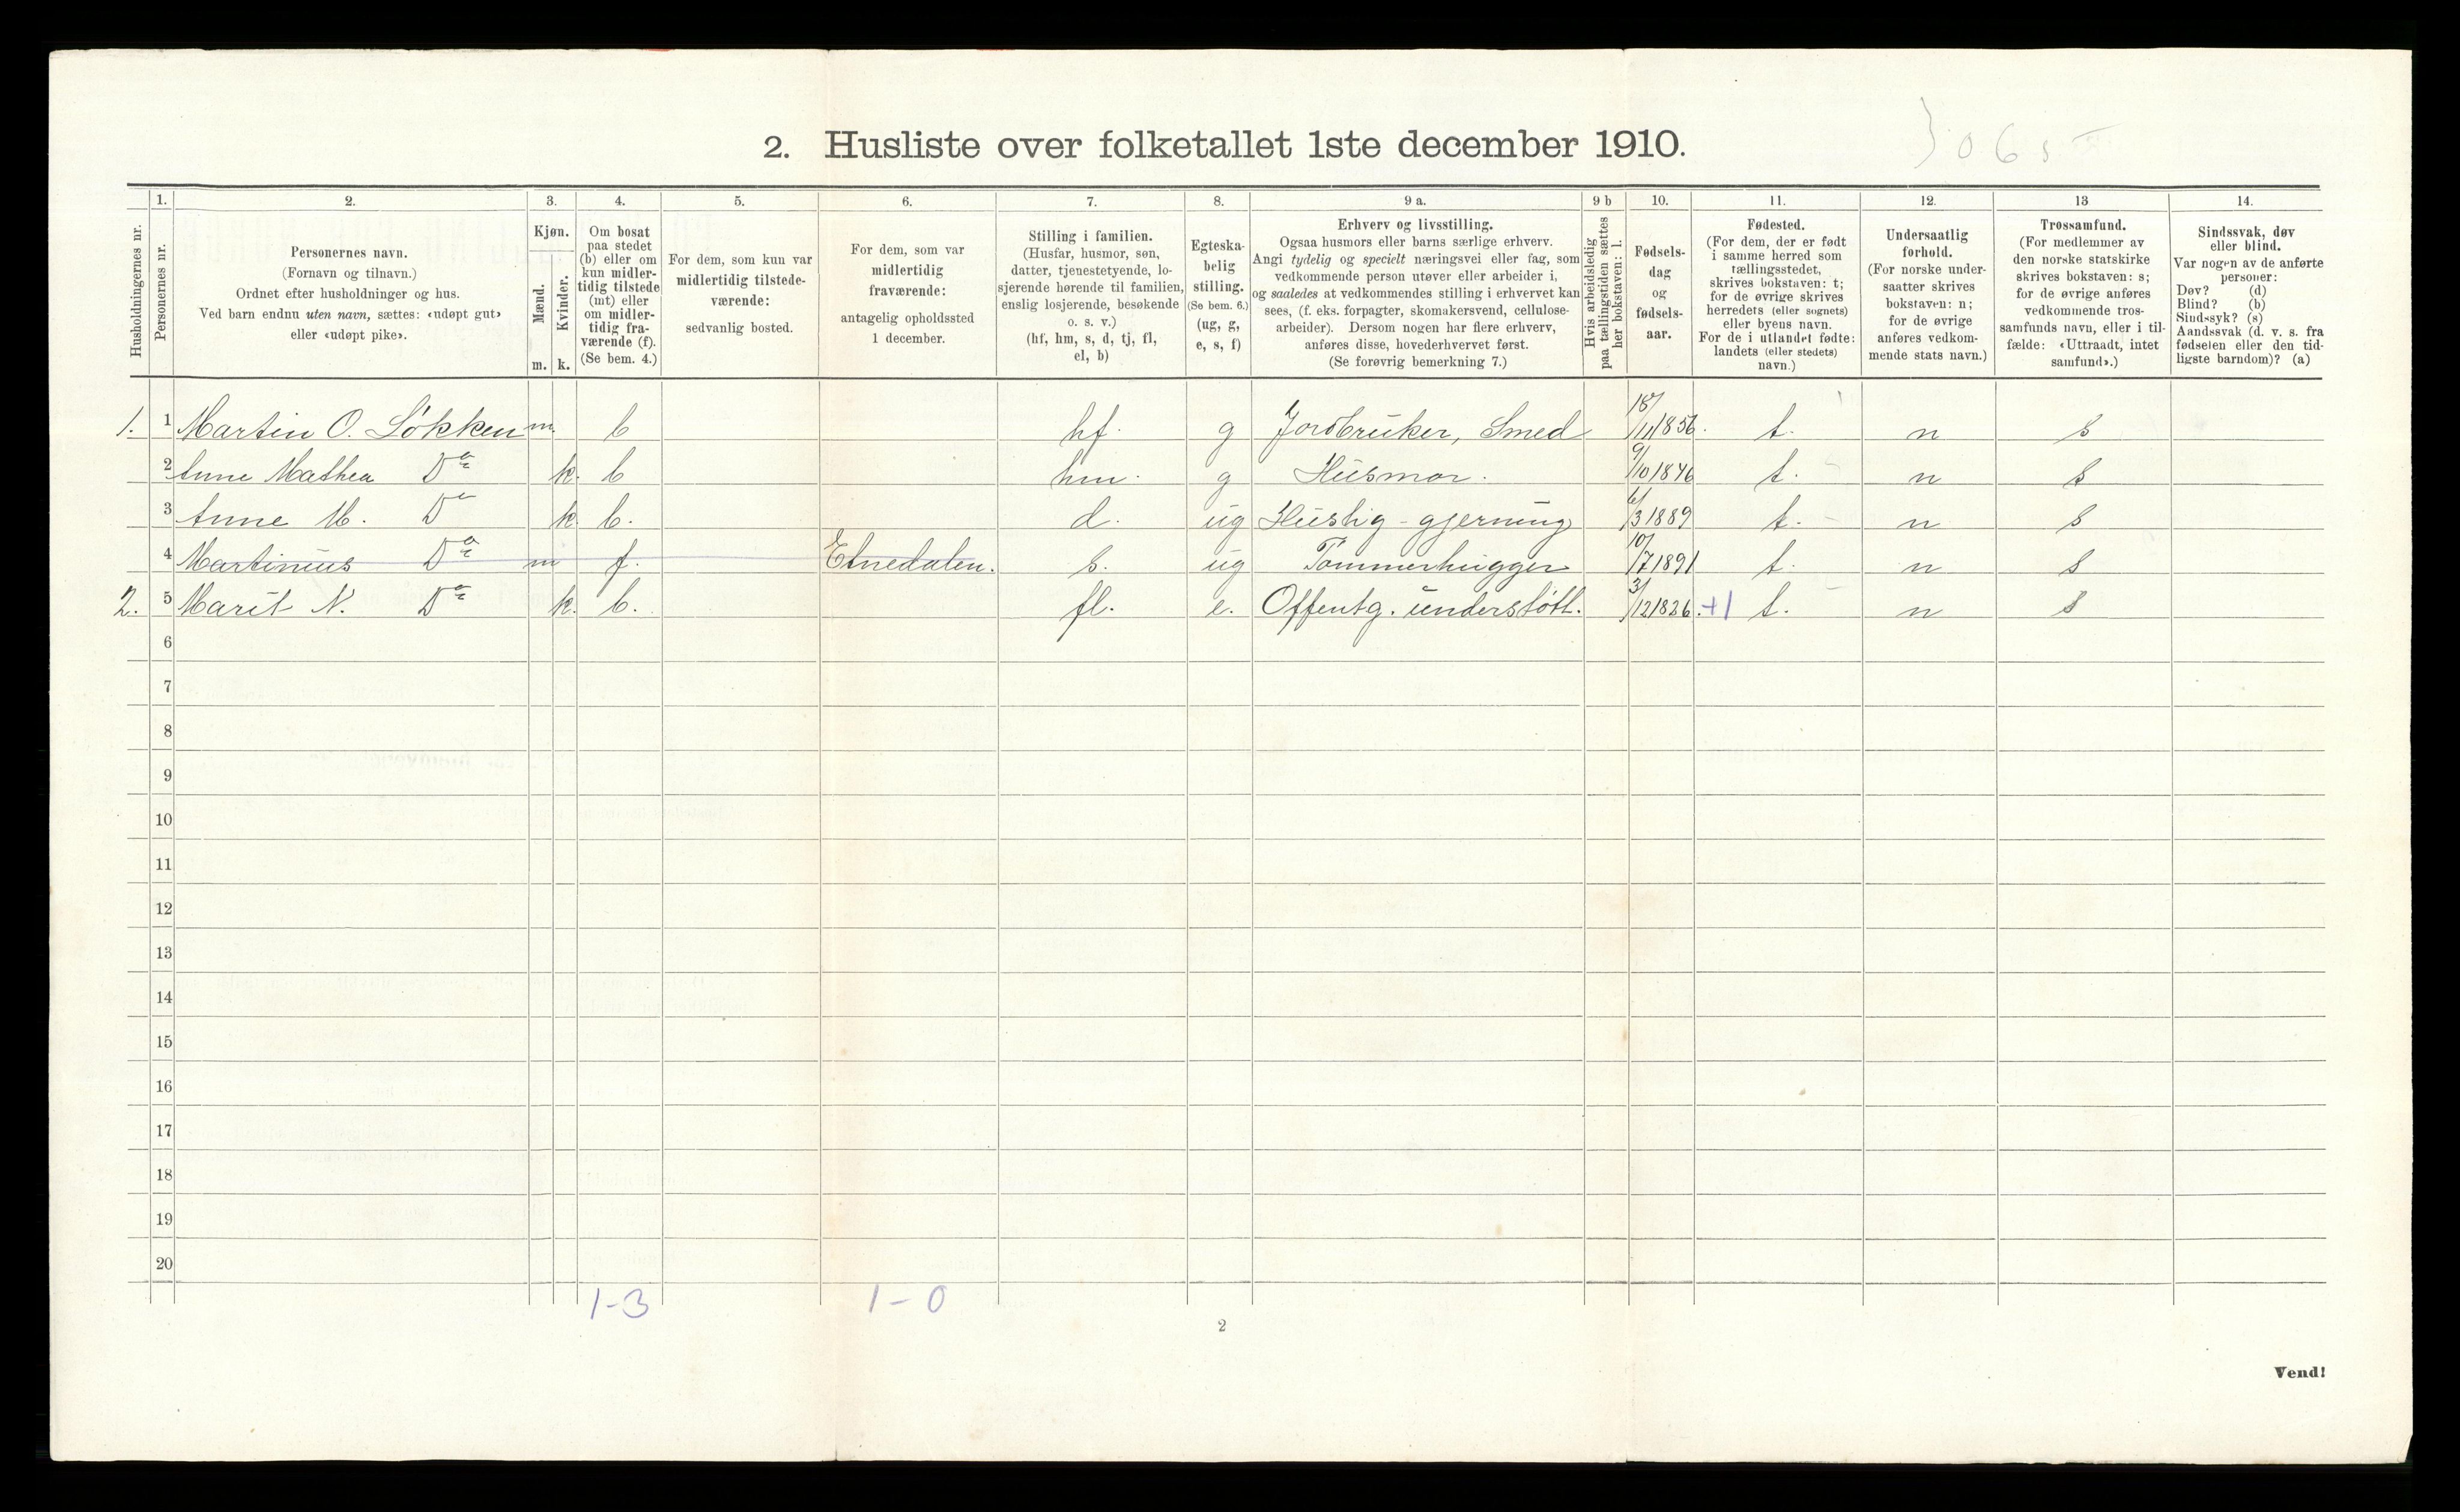 2. Husliste over folketallet 1ste december 1910.
Husholdningernes nr.
1. Personernes nr.
2. Personernes navn.
(Fornavn og tilnavn.)
Ordnet efter husholdninger og hus.
Ved barn endnu uten navn, sættes: «udøpt gut»
eller «udøpt pike».
3. Kjøn.
Mænd. m.
Kvinder. k.
4. Om bosat
paa stedet
(b) eller om
kun midler-
tidig tilstede
(mt) eller
om midler-
tidig fra-
værende (f).
(Se bem. 4.)
5. For dem, som kun var
midlertidig tilstede-
værende:
sedvanlig bosted.
6. For dem, som var
midlertidig
fraværende:
antagelig opholdssted
1 december.
7. Stilling i familien.
(Husfar, husmor, søn,
datter, tjenestetyende, lo-
sjerende hørende til familien,
enslig losjerende, besøkende
o. s. v.)
(hf, hm, s, d, tj, fl,
el, b)
8. Egteska-
belig
stilling.
(Se bem. 6.)
(ug, g,
e, s, f)
9 a. Erhverv og livsstilling.
Ogsaa husmors eller barns særlige erhverv.
Angi tydelig og specielt næringsvei eller fag, som
vedkommende person utøver eller arbeider i,
og saaledes at vedkommendes stilling i erhvervet kan
sees, (f. eks. forpagter, skomakersvend, cellulose-
arbeider). Dersom nogen har flere erhverv,
anføres disse, hovederhvervet først.
(Se forøvrig bemerkning 7.)
9 b Hvis arbeidsledig
paa tællingstiden sættes
her bokstaven: l.
10. Fødsels-
dag
og
fødsels-
aar.
11. Fødested.
(For dem, der er født
i samme herred som
tællingsstedet,
skrives bokstaven: t;
for de øvrige skrives
herredets (eller sognets)
eller byens navn.
For de i utlandet fødte:
landets (eller stedets)
navn.)
12. Undersaatlig
forhold.
(For norske under-
saatter skrives
bokstaven: n;
for de øvrige
anføres vedkom-
mende stats navn.)
13 Trossamfund.
(For medlemmer av
den norske statskirke
skrives bokstaven: s;
for de øvrige anføres
vedkommende tros-
samfunds navn, eller i til-
fælde: «Uttraadt, intet
samfund».)
14. Sindssvak, døv
eller blind.
Var nogen av de anførte
personer:
Døv? (d)
Blind? (b)
Sindssyk? (s)
Aandssvak (d. v. s. fra
fødselen eller den tid-
ligste barndom)? (a)
1. 1 Martin O. Løkken m. b hf. g Jordbruker, Smed 18/11 1856. t. n s
2 Anne Mathea Do k. b hm. g Husmor. 9/10 1846 t. n s
3 Anne M. Do k. b. d. ug Huslig-gjerning 6/3 1889 t. n s
4 Martinius Do m f. Etnedalen. s. ug Tømmerhugger 10/7 1891 t. n s
2. 5 Marit N. Do k. b. fl. e. Offentg. understøtt. 3/12 1826. +1 t. n s
6
7
8
9
10
11
12
13
14
15
16
17
18
19
20
1-3 1-0
2
Vend!